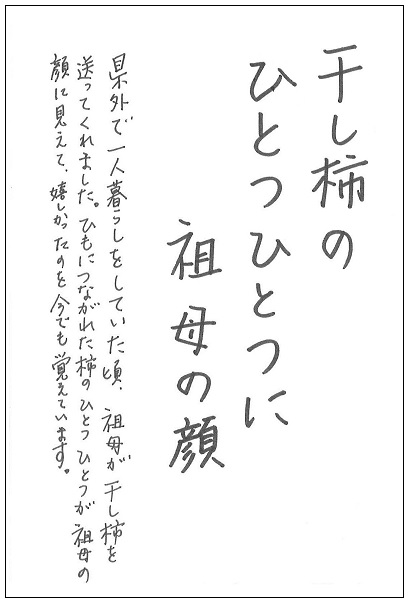 干し柿の
ひとつひとつに
祖母の顔
県外で一人暮らしをしていた頃、祖母が干し柿を
送ってくれました。ひもにつながれた柿のひとつひとつが祖母の
顔に見えて、嬉しかったのを今でも覚えています。